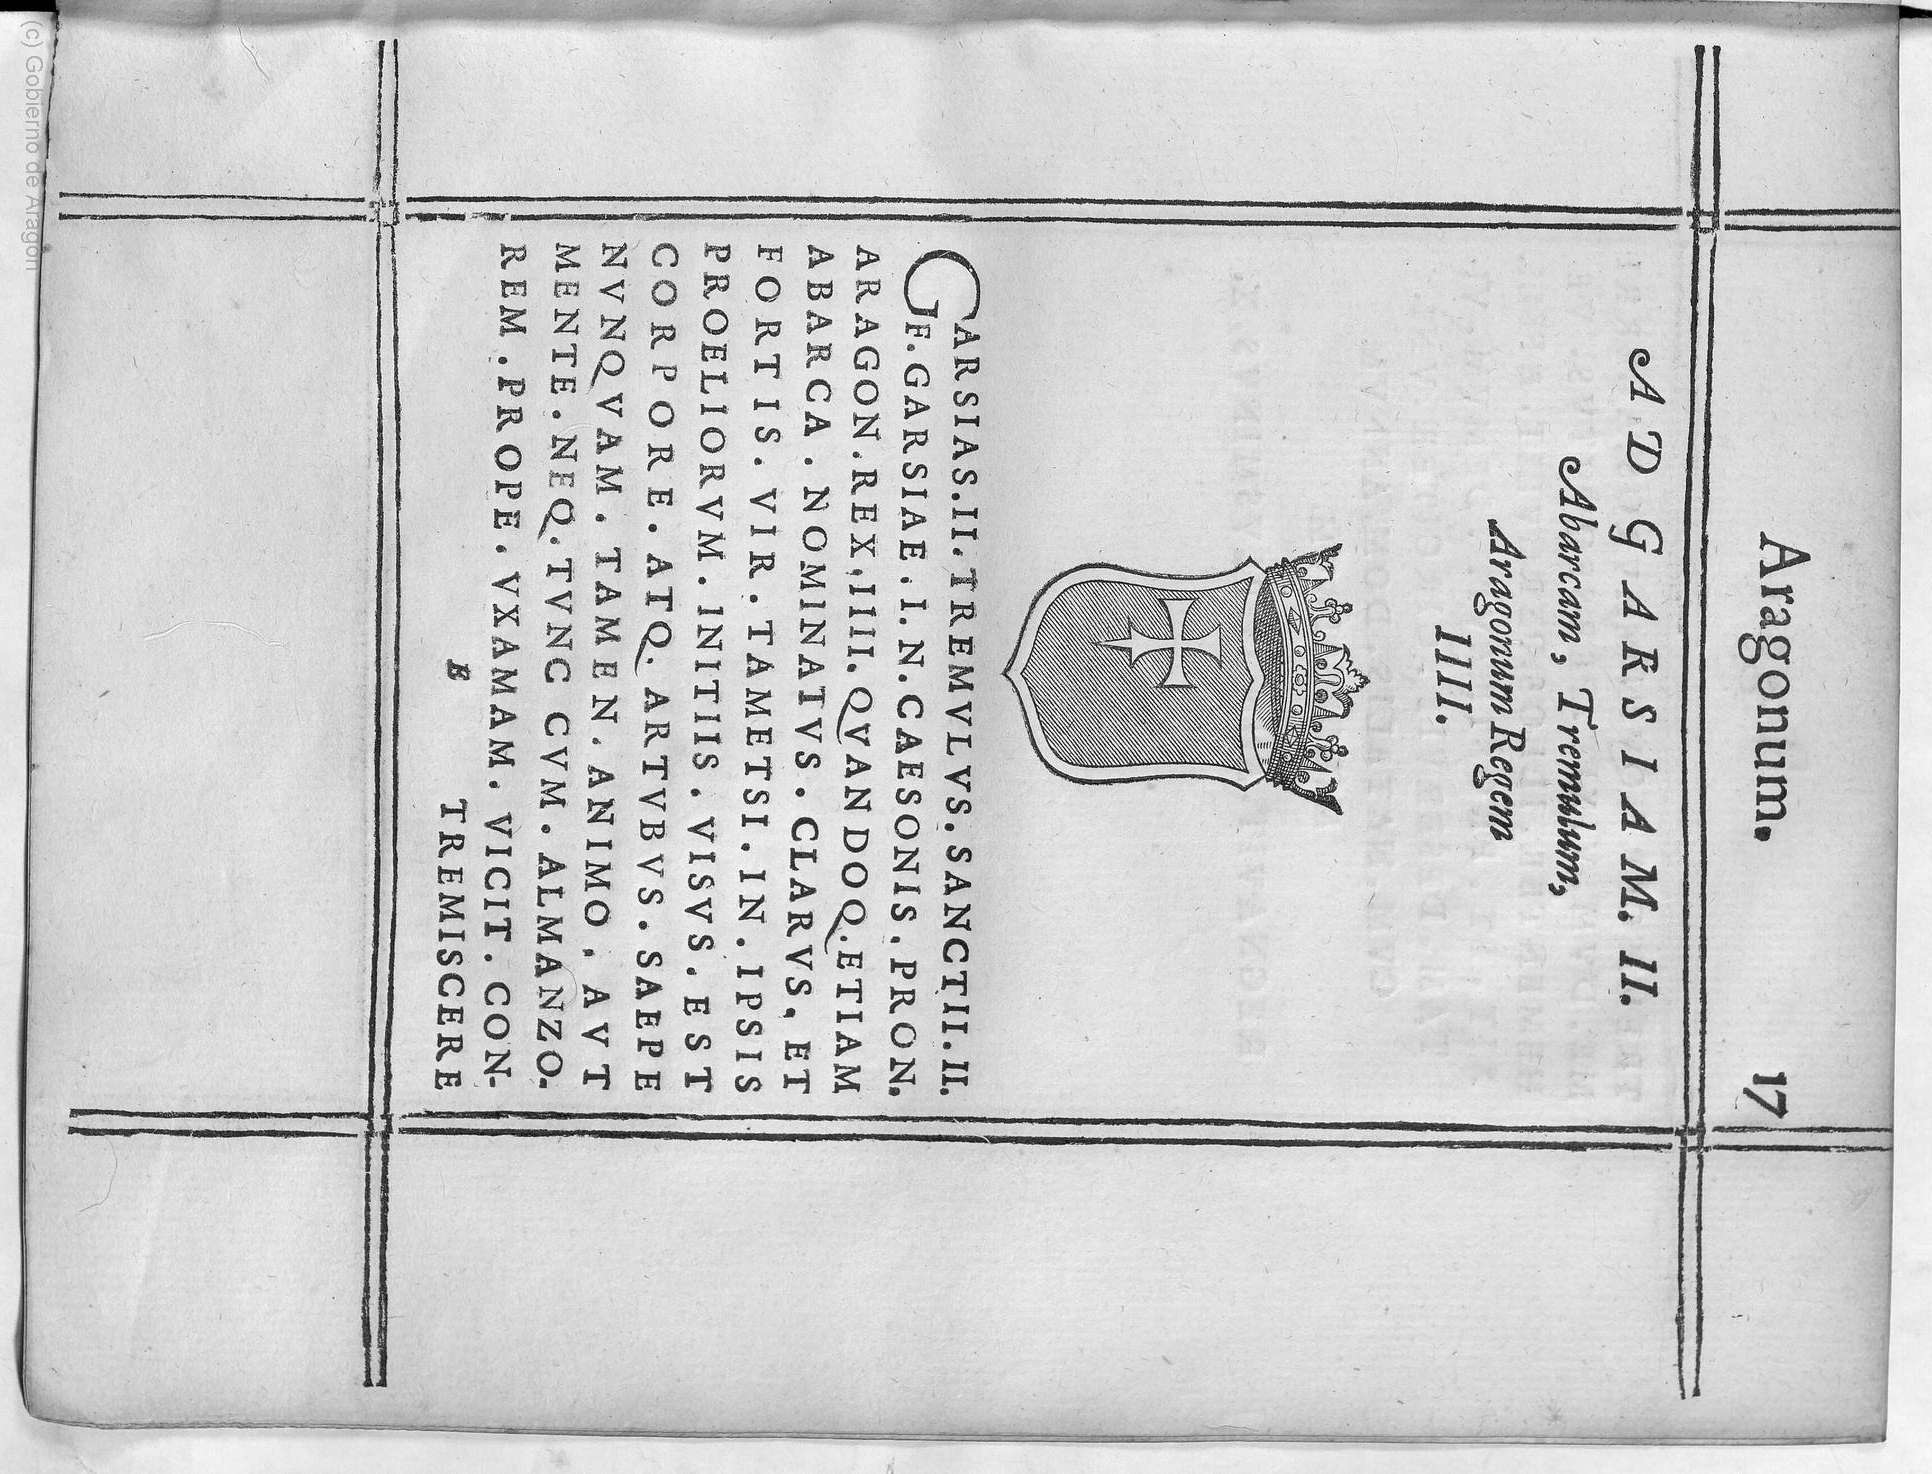 Aragonum. 17
AD GARSIAM. II.
Abarcam, Tremulum,
Aragonum Regem
IIII.
GARSIAS. II. TREMVLVS. SANCTII. II.
F. GARSIAE. I. N. CAESONIS. PRON.
ARAGON. REX. IIII. QVANDOQ. ETIAM
ABARCA. NOMINATVS. CLARVS, ET
FORTIS. VIR. TAMETSI. IN. IPSIS
PROELIORVM. INITIIS. VISVS. EST
CORPORE. ATQ. ARTVBVS. SAEPE
NVNQVAM. TAMEN. ANIMO. AVT
MENTE. NEQ. TVNC CVM. ALMANZO.
REM. PROPE. VXAMAM. VICIT. CON-
E TREMISCERE
(c) Gobierno de Aragón